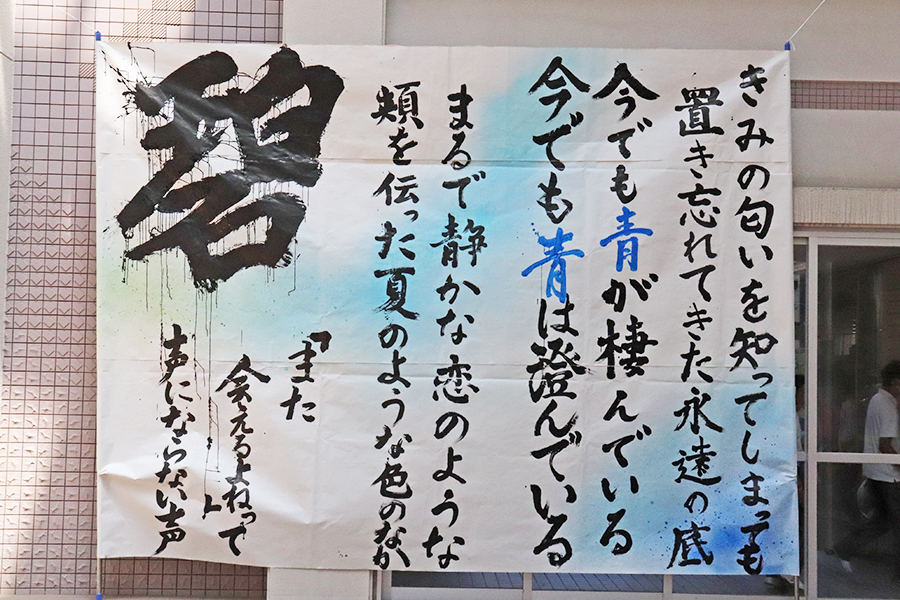 きみの匂いを知ってしまっても
置き忘れてきた永遠の底
今でも青が棲んでいる
今でも青は澄んでいる
まるで静かな恋のような
頬を伝った夏のような色のなか
碧
「また
会えるよねって」
声にならない声